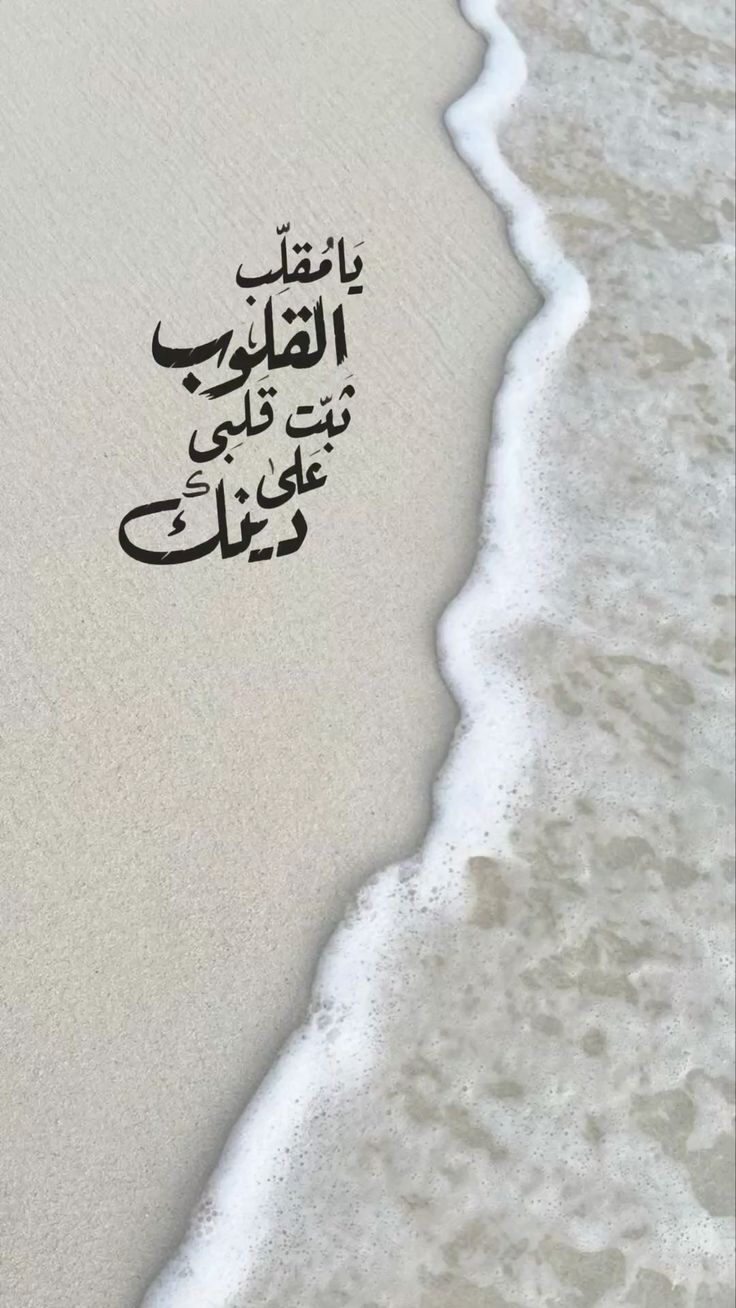 يَامُقلِّب
القلوب
ثَبّت قَلبي
عَلىٰ
دينك